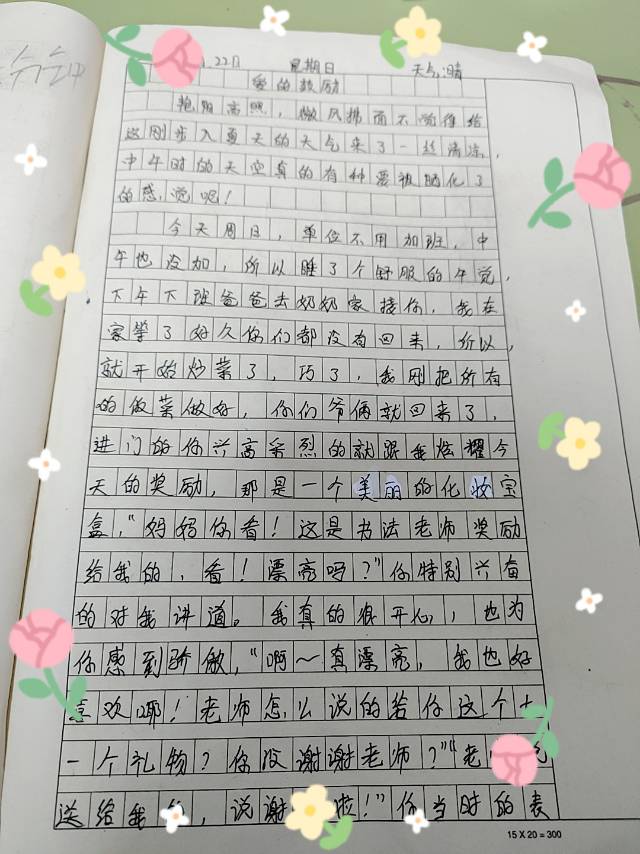 .22日 星期日 天气:晴
爱的鼓励
艳阳高照，微风拂面不断得给
这刚步入夏天的天气来了一丝清凉，
中午时的天空真的有种要被晒化了
的感觉呢！
今天周日，单位不用加班，中
午也没加，所以睡了个舒服的午觉，
下午下班爸爸去奶奶家接你，我在
家等了好久你们都没有回来，所以，
就开始炒菜了，巧了，我刚把所有
的做菜做好，你们爷俩就回来了，
进门的你兴高采烈的就跟我炫耀今
天的奖励，那是一个美丽的化妆宝
盒，“妈妈你看！这是书法老师奖励
给我的，看！漂亮吗？”你特别兴奋
的对我讲道。我真的很开心，也为
你感到骄傲，“啊～真漂亮，我也好
喜欢哪！老师怎么说的给你这个大
一个礼物？你没谢谢老师？”“老
送给我的，说谢 啦！”你当时的表
15 X 20 = 300